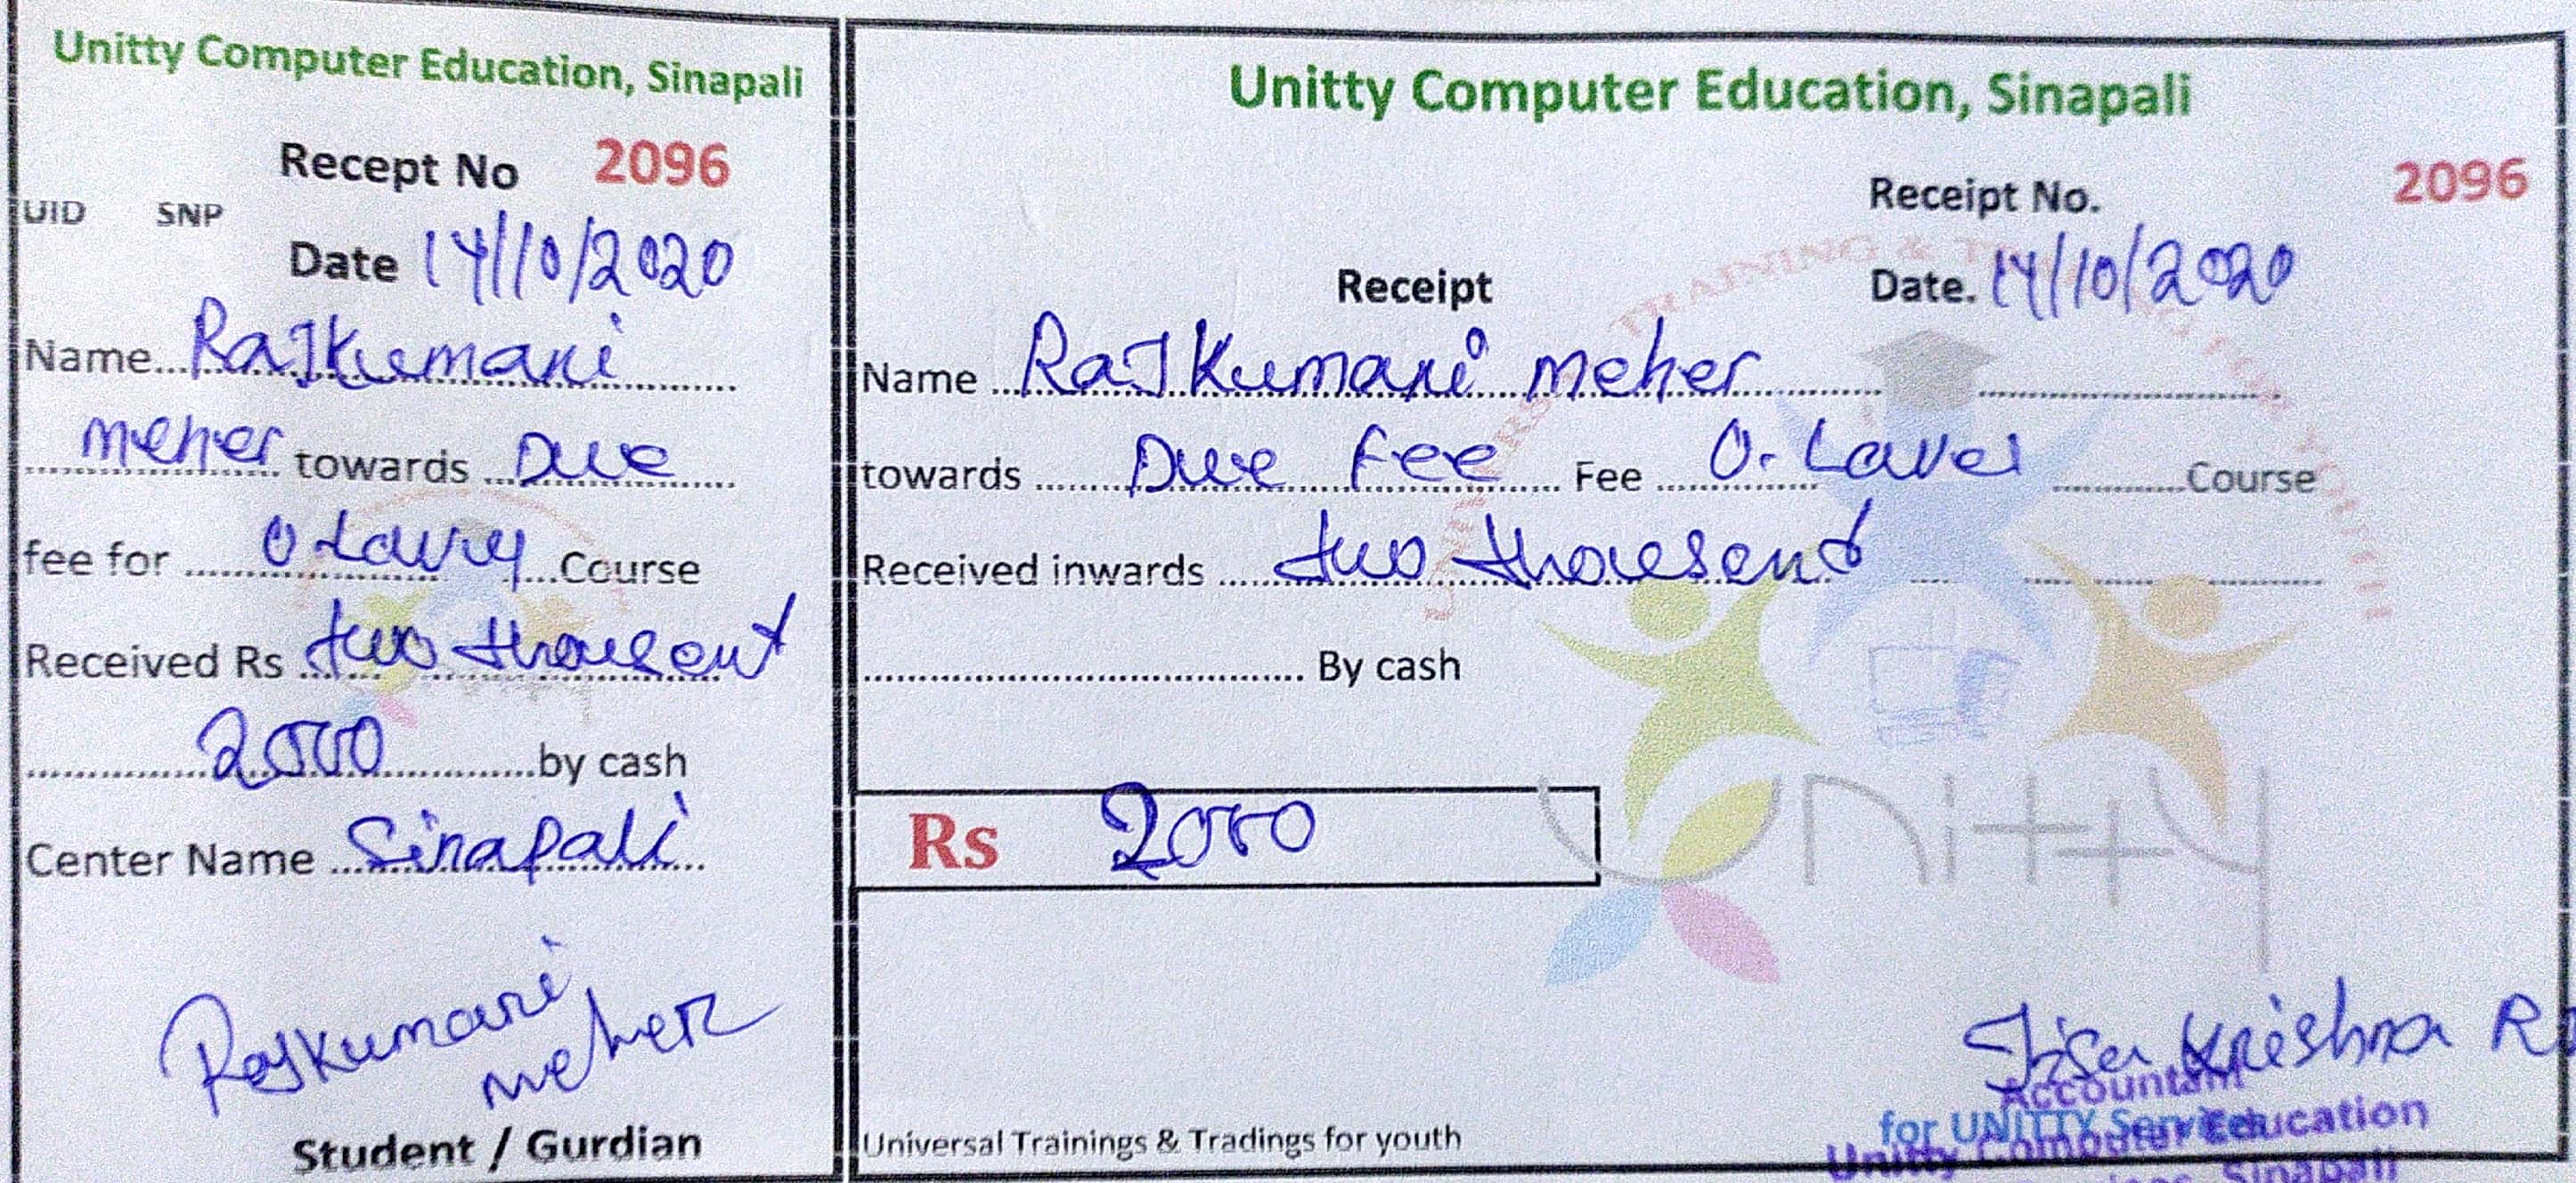 Unitty Computer Education, Sinapali
Recept No 2096
UID SNP
Date 14/10/2020
Name RaJkumari
meher towards Due
fee for O Course
Received Rs two thousent
2000 by cash
Center Name Sinapali
Rajkumari
meher
Student / Gurdian
Unitty Computer Education, Sinapali
Receipt No. 2096
Receipt Date. 14/10/2020
Name RaJKumari meher
towards Due Fee Fee O. Lavel Course
Received inwards two thousend
By cash
Rs 2000
Unitty
Krishna
Accountant
Universal Trainings & Tradings for youth for UNITTY Services
Unitty Computer Education
Sinapali